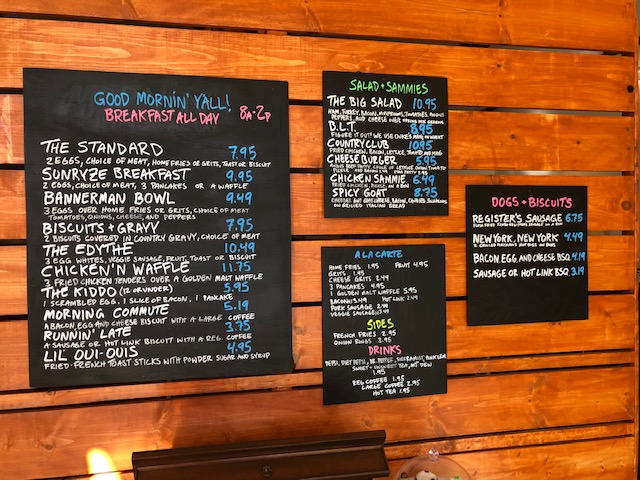 GOOD MORNIN' Y'ALL!
BREAKFAST ALL DAY 8A-2P
THE STANDARD 7.95
2 EGGS, CHOICE OF MEAT, HOME FRIES OR GRITS, TOAST OR BISCUIT
SUNRYZE BREAKFAST 9.95
2 EGGS, CHOICE OF MEAT, 3 PANCAKES OR A WAFFLE
BANNERMAN BOWL 9.49
3 EGGS OVER HOME FRIES OR GRITS, CHOICE OF MEAT
TOMATOES, ONIONS, CHEESE, AND PEPPERS
BISCUITS + GRAVY 7.95
2 BISCUITS COVERED IN COUNTRY GRAVY, CHOICE OF MEAT
THE EDYTHE 10.49
3 EGG WHITES, VEGGIE SAUSAGE, FRUIT, TOAST OR BISCUIT
CHICKEN'N WAFFLE 11.75
3 FRIED CHICKEN TENDERS OVER A GOLDEN MALT WAFFLE
THE KIDDO (12 OR UNDER) 5.95
1 SCRAMBLED EGG, 1 SLICE OF BACON, 1 PANCAKE
MORNING COMMUTE 5.19
A BACON, EGG AND CHEESE BISCUIT WITH A LARGE COFFEE
RUNNIN' LATE 3.75
A SAUSAGE OR HOT LINK BISCUIT WITH A REG. COFFEE
LIL OUI-OUIS 4.95
FRIED FRENCH TOAST STICKS WITH POWDER SUGAR AND SYRUP
SALAD + SAMMIES
THE BIG SALAD 10.95
HAM, TURKEY, BACON, MUSHROOMS, TOMATOES, ONIONS
PEPPERS, AND CHEESE OVER SPRING MIX GREENS
B.L.T. 8.95
FIGURE IT OUT! WE USE DUKE'S MAYO, ON WHEAT
COUNTRY CLUB 10.95
FRIED CHICKEN, BACON, LETTUCE, TOMATO AND MAYO
CHEESE BURGER 5.95
CHICKEN SAMMIE 6.49
FRIED CHICKEN, PICKLE, ON A BUN
SPICY GOAT 8.75
ON GRILLED ITALIAN BREAD
A LA CARTE
HOME FRIES 1.95 FRUIT 4.95
GRITS 1.95
CHEESE GRITS 2.49
3 PANCAKES 4.95
1 GOLDEN MALT WAFFLE 5.95
BACON 3.49 HOT LINK 2.49
PORK SAUSAGE 2.49
VEGGIE SAUSAGE 3.49
SIDES
FRENCH FRIES 2.95
ONION RINGS 2.95
DRINKS
PEPSI, DIET PEPSI, DR. PEPPER, SIERRA MIST, PINK LEM
SWEET + UNSWEET TEA, MT. DEW
1.95
REG COFFEE 1.95
LARGE COFFEE 2.95
HOT TEA 1.95
DOGS + BISCUITS
REGISTER'S SAUSAGE 6.75
NEW YORK, NEW YORK 4.49
BACON, EGG AND CHEESE BSQ 4.19
SAUSAGE OR HOT LINK BSQ. 3.19